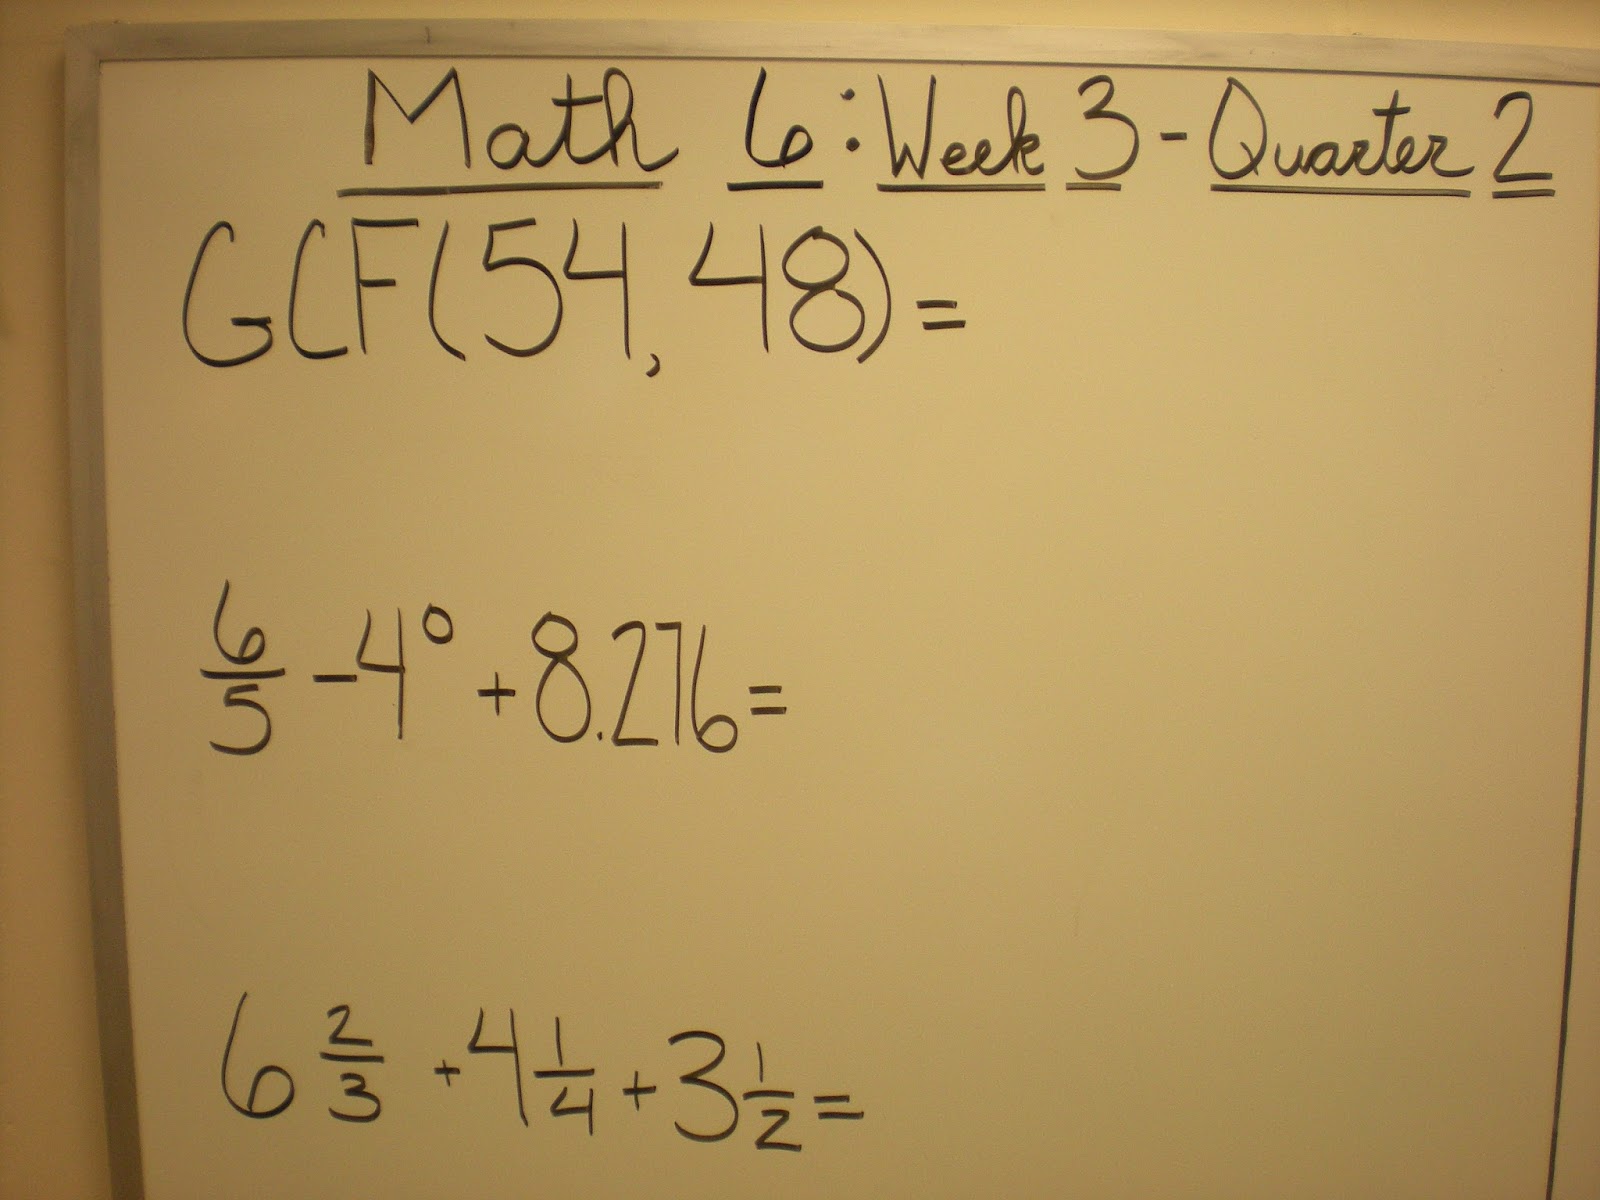 Math 6: Week 3 - Quarter 2
GCF(54, 48) =
6/5 - 4⁰ + 8.276 =
6 2/3 + 4 1/4 + 3 1/2 =